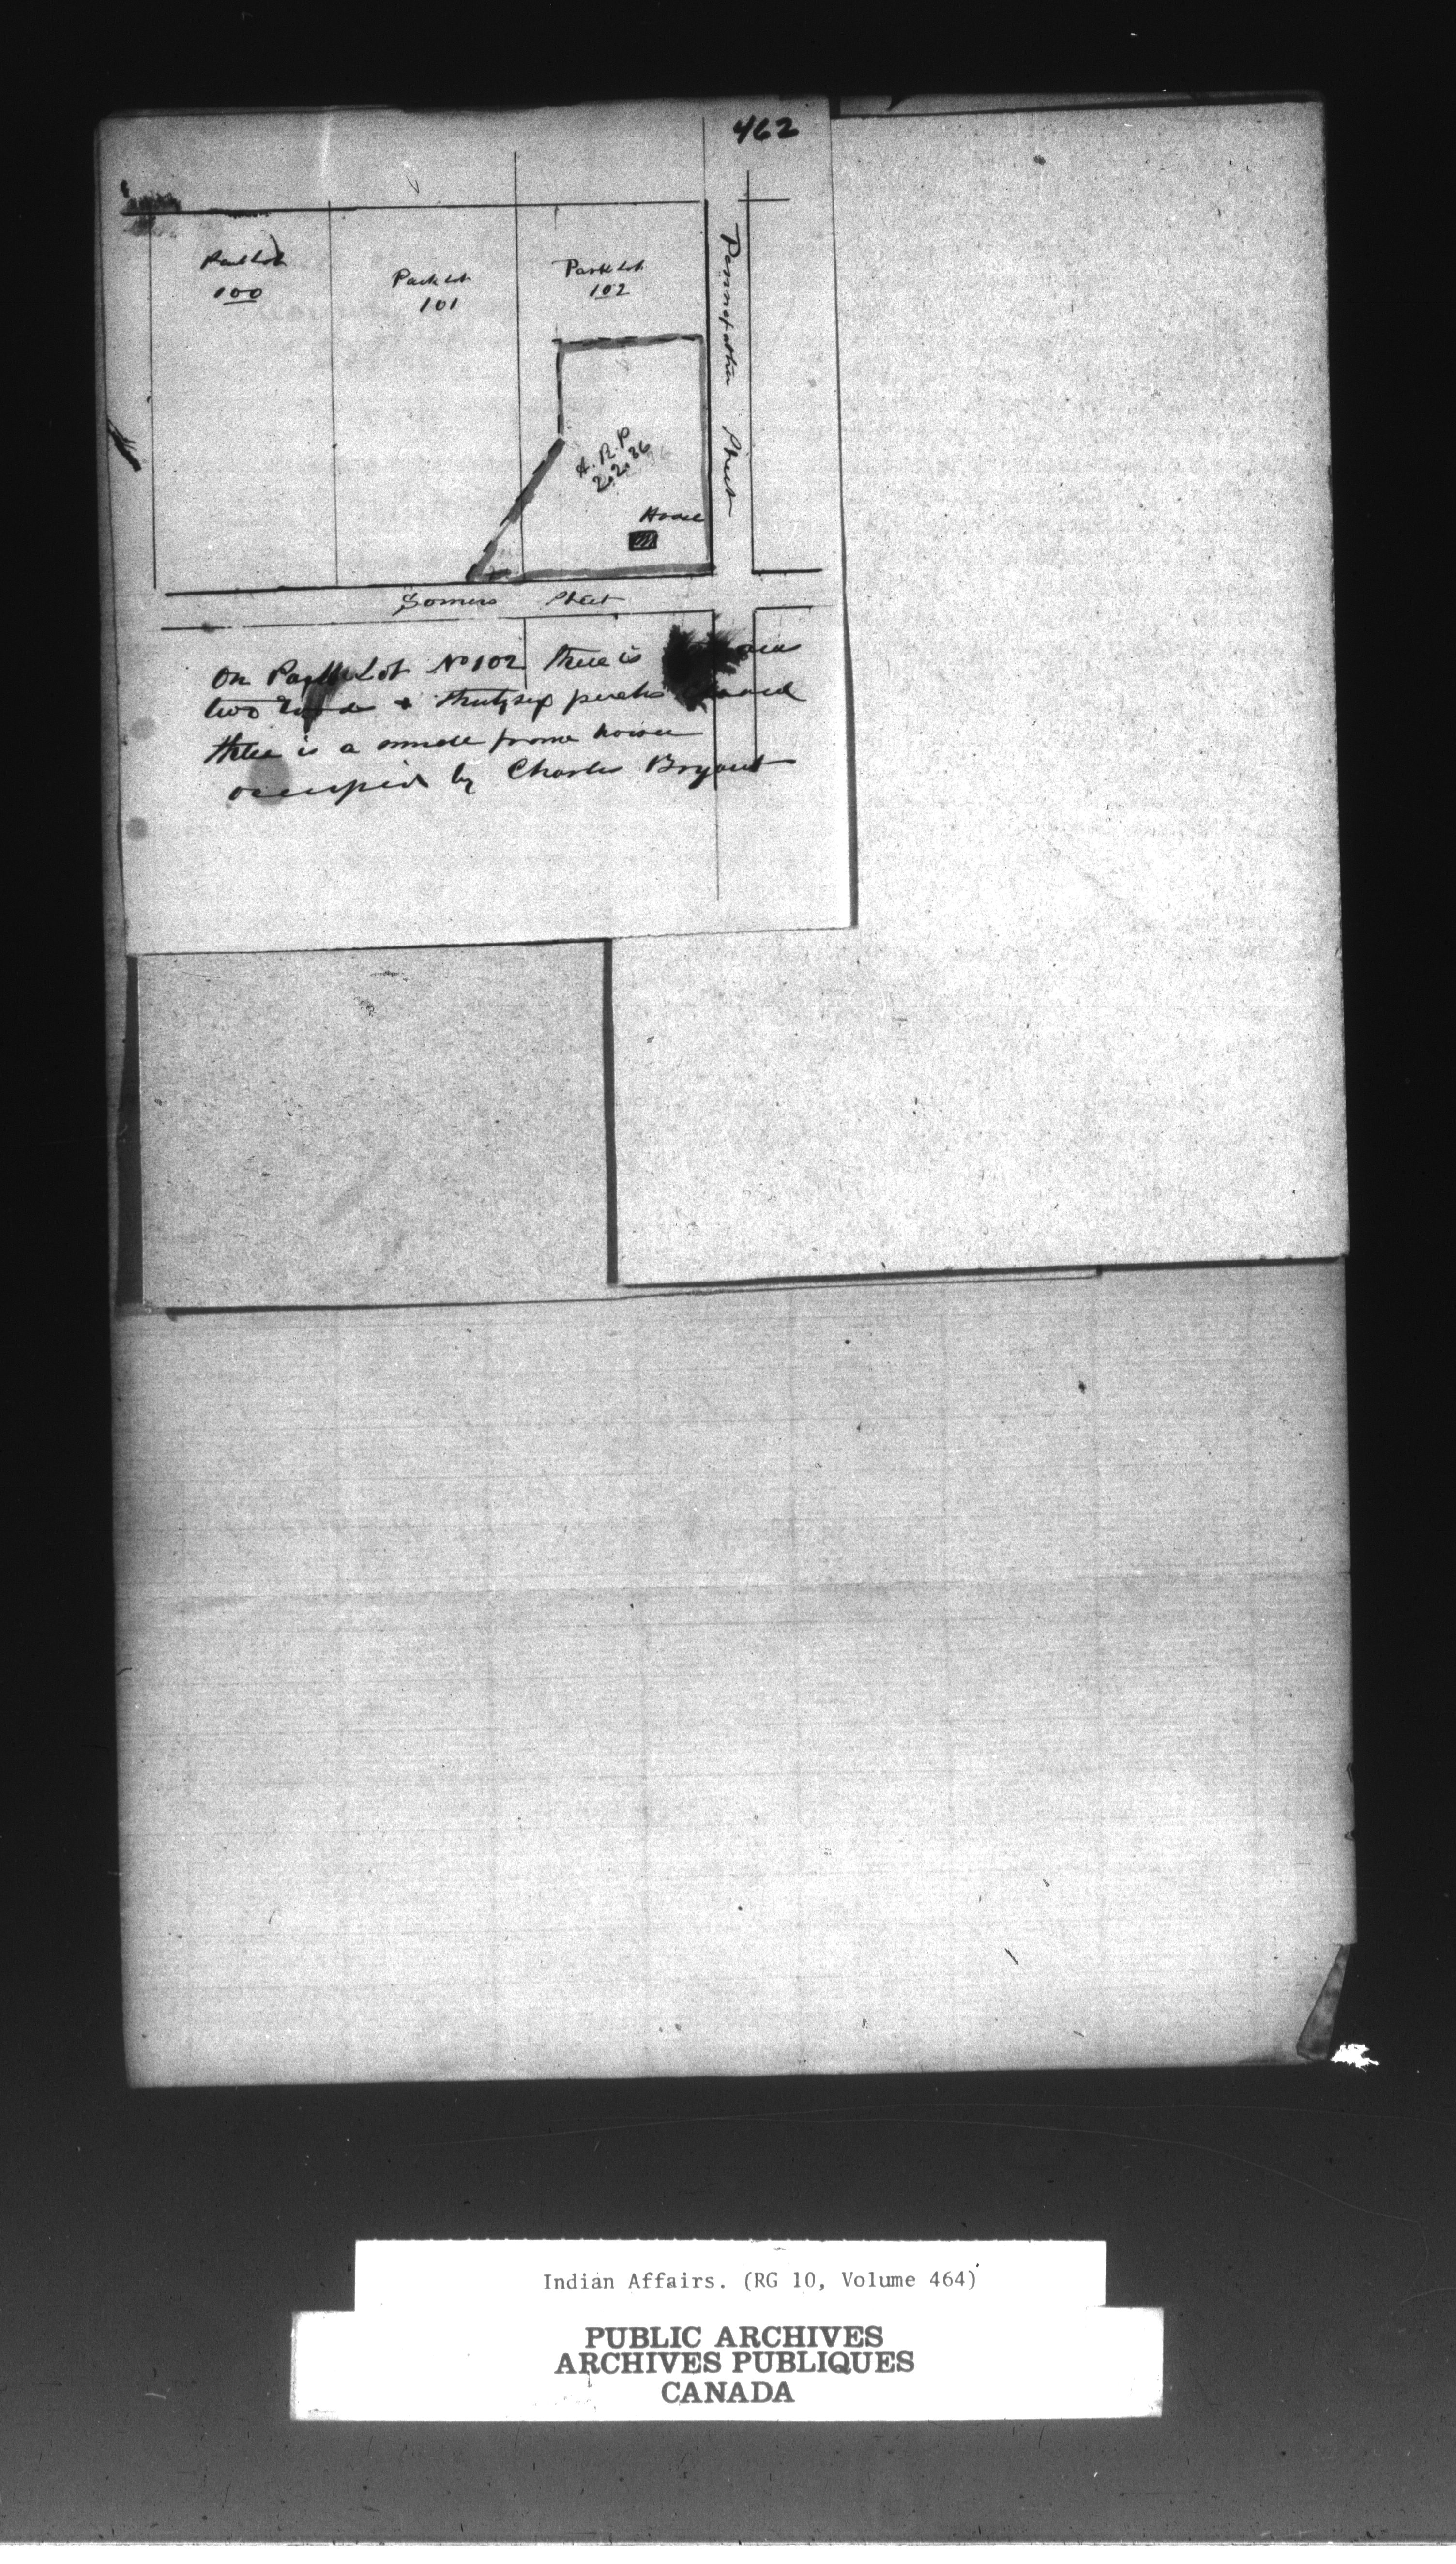 462
Park Lot
100
Park Lot
101
Park Lot
102
Pennefather Street
A. R. P
2. 2. 36
House
Somers Street
On Park Lot No 102 there is acres
two roods & thirty six perches cleared
there is a small frame house
occupied by Charles Bryant
Indian Affairs. (RG 10, Volume 464)
PUBLIC ARCHIVES
ARCHIVES PUBLIQUES
CANADA